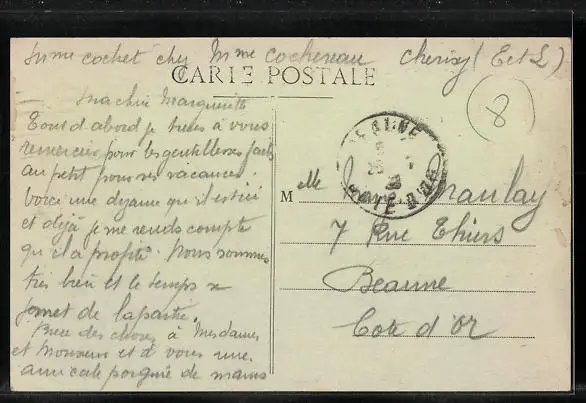 Mme cochet chez Mme cochereau cherisy (E et L)
CARTE POSTALE
8
ma chère Marguerite
Tout d'abord je tiens à vous
remercier pour les gentillesses faites
au petit pour ses vacances.
Voici une dizaine qu'il est ici
et déjà je me rends compte
qu'il a profité. Nous sommes
très bien et le temps se
met de la partie.
Bien des choses à Mesdames
et Monsieur et à vous une
amicale poignée de mains
BEAUNE
COTE D'OR
Melle Graulay
7 Rue Thiers
Beaune
Cote d'Or